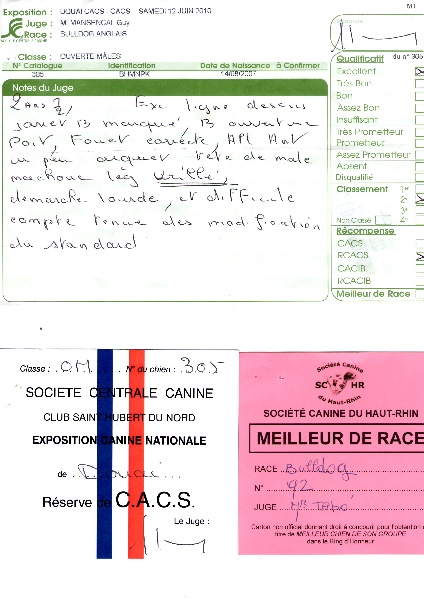 Exposition : DOUAI CACS - CACS SAMEDI 12 JUIN 2010
Juge : M. MANSENCAL Guy
Race : BULLDOG ANGLAIS
Classe : OUVERTE MÂLES
N° Catalogue Identification Date de Naissance à Confirmer
305 BHMNPK 14/08/2007
Notes du Juge
2 Ans ½, Exc ligne dessus
marqué, B ouverture
Poit, Fouet correcte, Apl Ant
un peu arqué tête de male
machoire lég vrillé,
démarche lourde, et difficile
compte tenue des modification
du standard
Signature
Qualificatif du n° 305
Excellent
Très Bon
Bon
Assez Bon
Insuffisant
Très Prometteur
Prometteur
Assez Prometteur
Absent
Disqualifié
Classement 1°
2°
3°
Non Classé 4°
Récompense
CACS
RCACS
CACIB
RCACIB
Meilleur de Race
Classe : O.M. N° du chien : 305
SOCIETE CENTRALE CANINE
CLUB SAINT HUBERT DU NORD
EXPOSITION CANINE NATIONALE
de Douai
Réserve de C.A.C.S.
Le Juge :
Société Canine
SC HR
du Haut-Rhin
SOCIÉTÉ CANINE DU HAUT-RHIN
MEILLEUR DE RACE
RACE Bulldog
N° 92
JUGE
Carton non officiel donnant droit à concourir pour l'obtention
titre de MEILLEUR CHIEN DE SON GROUPE
dans le Ring d'Honneur